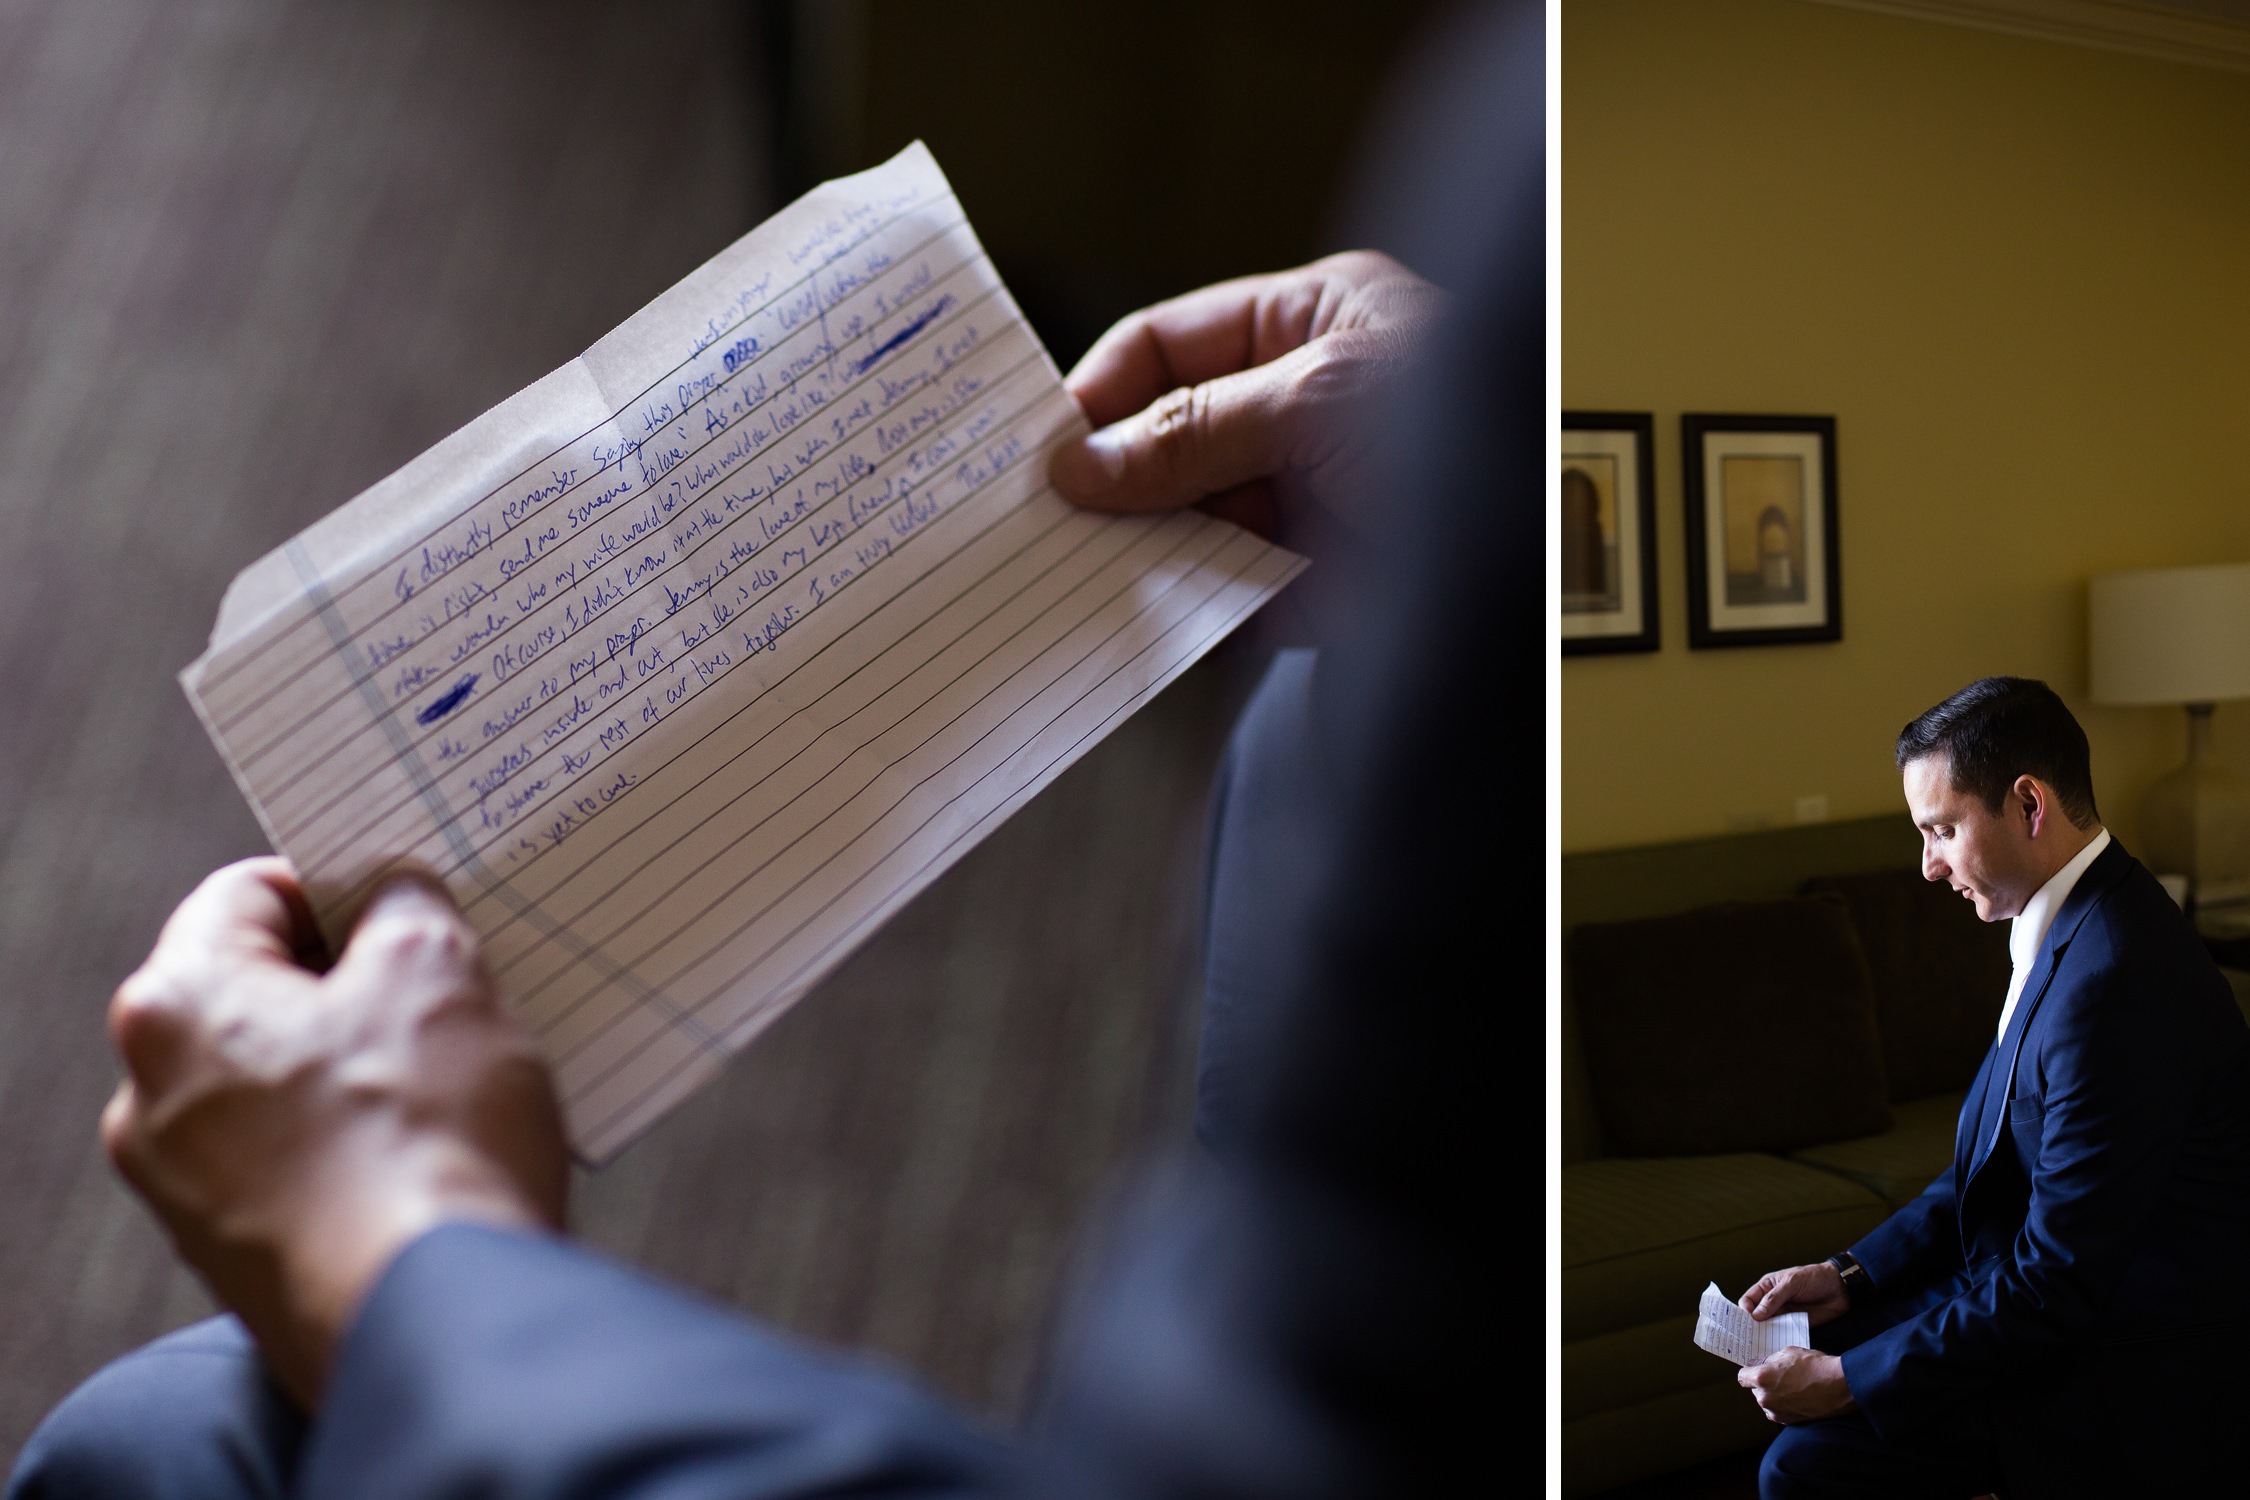 when I was younger
I distinctly remember saying this prayer: "Lord, when the
time is right, send me someone to love." As a kid, growing up, I would
often wonder who my wife would be? What would she look like?
Of course, I didn't know it at the time, but when I met Jenny, I met
the answer to my prayer. Jenny is the love of my life, She
gorgeous inside and out, but she is also my best friend. I can't wait
to share the rest of our lives together. I am truly The best
is yet to come.